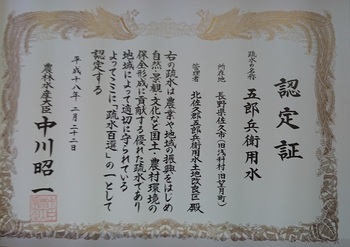 認定証
疏水の名称
五郎兵衛用水
所在地 長野県佐久市(旧浅科村・旧望月町)
管理者 北佐久郡五郎兵衛用水土地改良区 殿
右の疏水は農業や地域の振興をはじめ
自然・景観・文化など国土・農村環境の
保全形成に貢献する優れた疏水であり
地域によって適切に守られている
よってここに「疏水百選」の一として
認定する
平成十八年二月二十二日
農林水産大臣 中川昭一